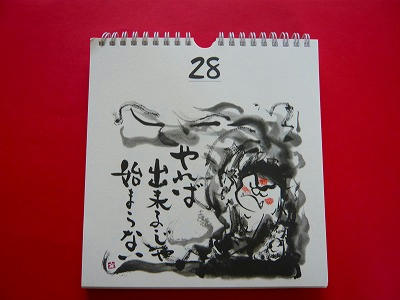 28
やれば
出来るじゃ
始まらない